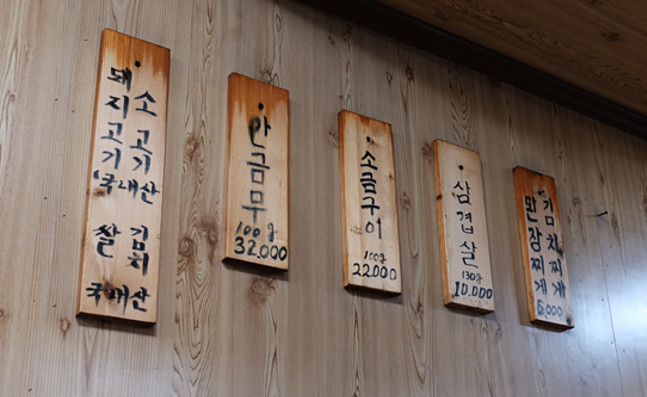 돼지고기
소고기
국내산
쌀
김치
국내산
안금무
100g
32.000
소금구이
100g
22000
삼겹살
130g
10.000
김치찌게
된장찌게
6,000